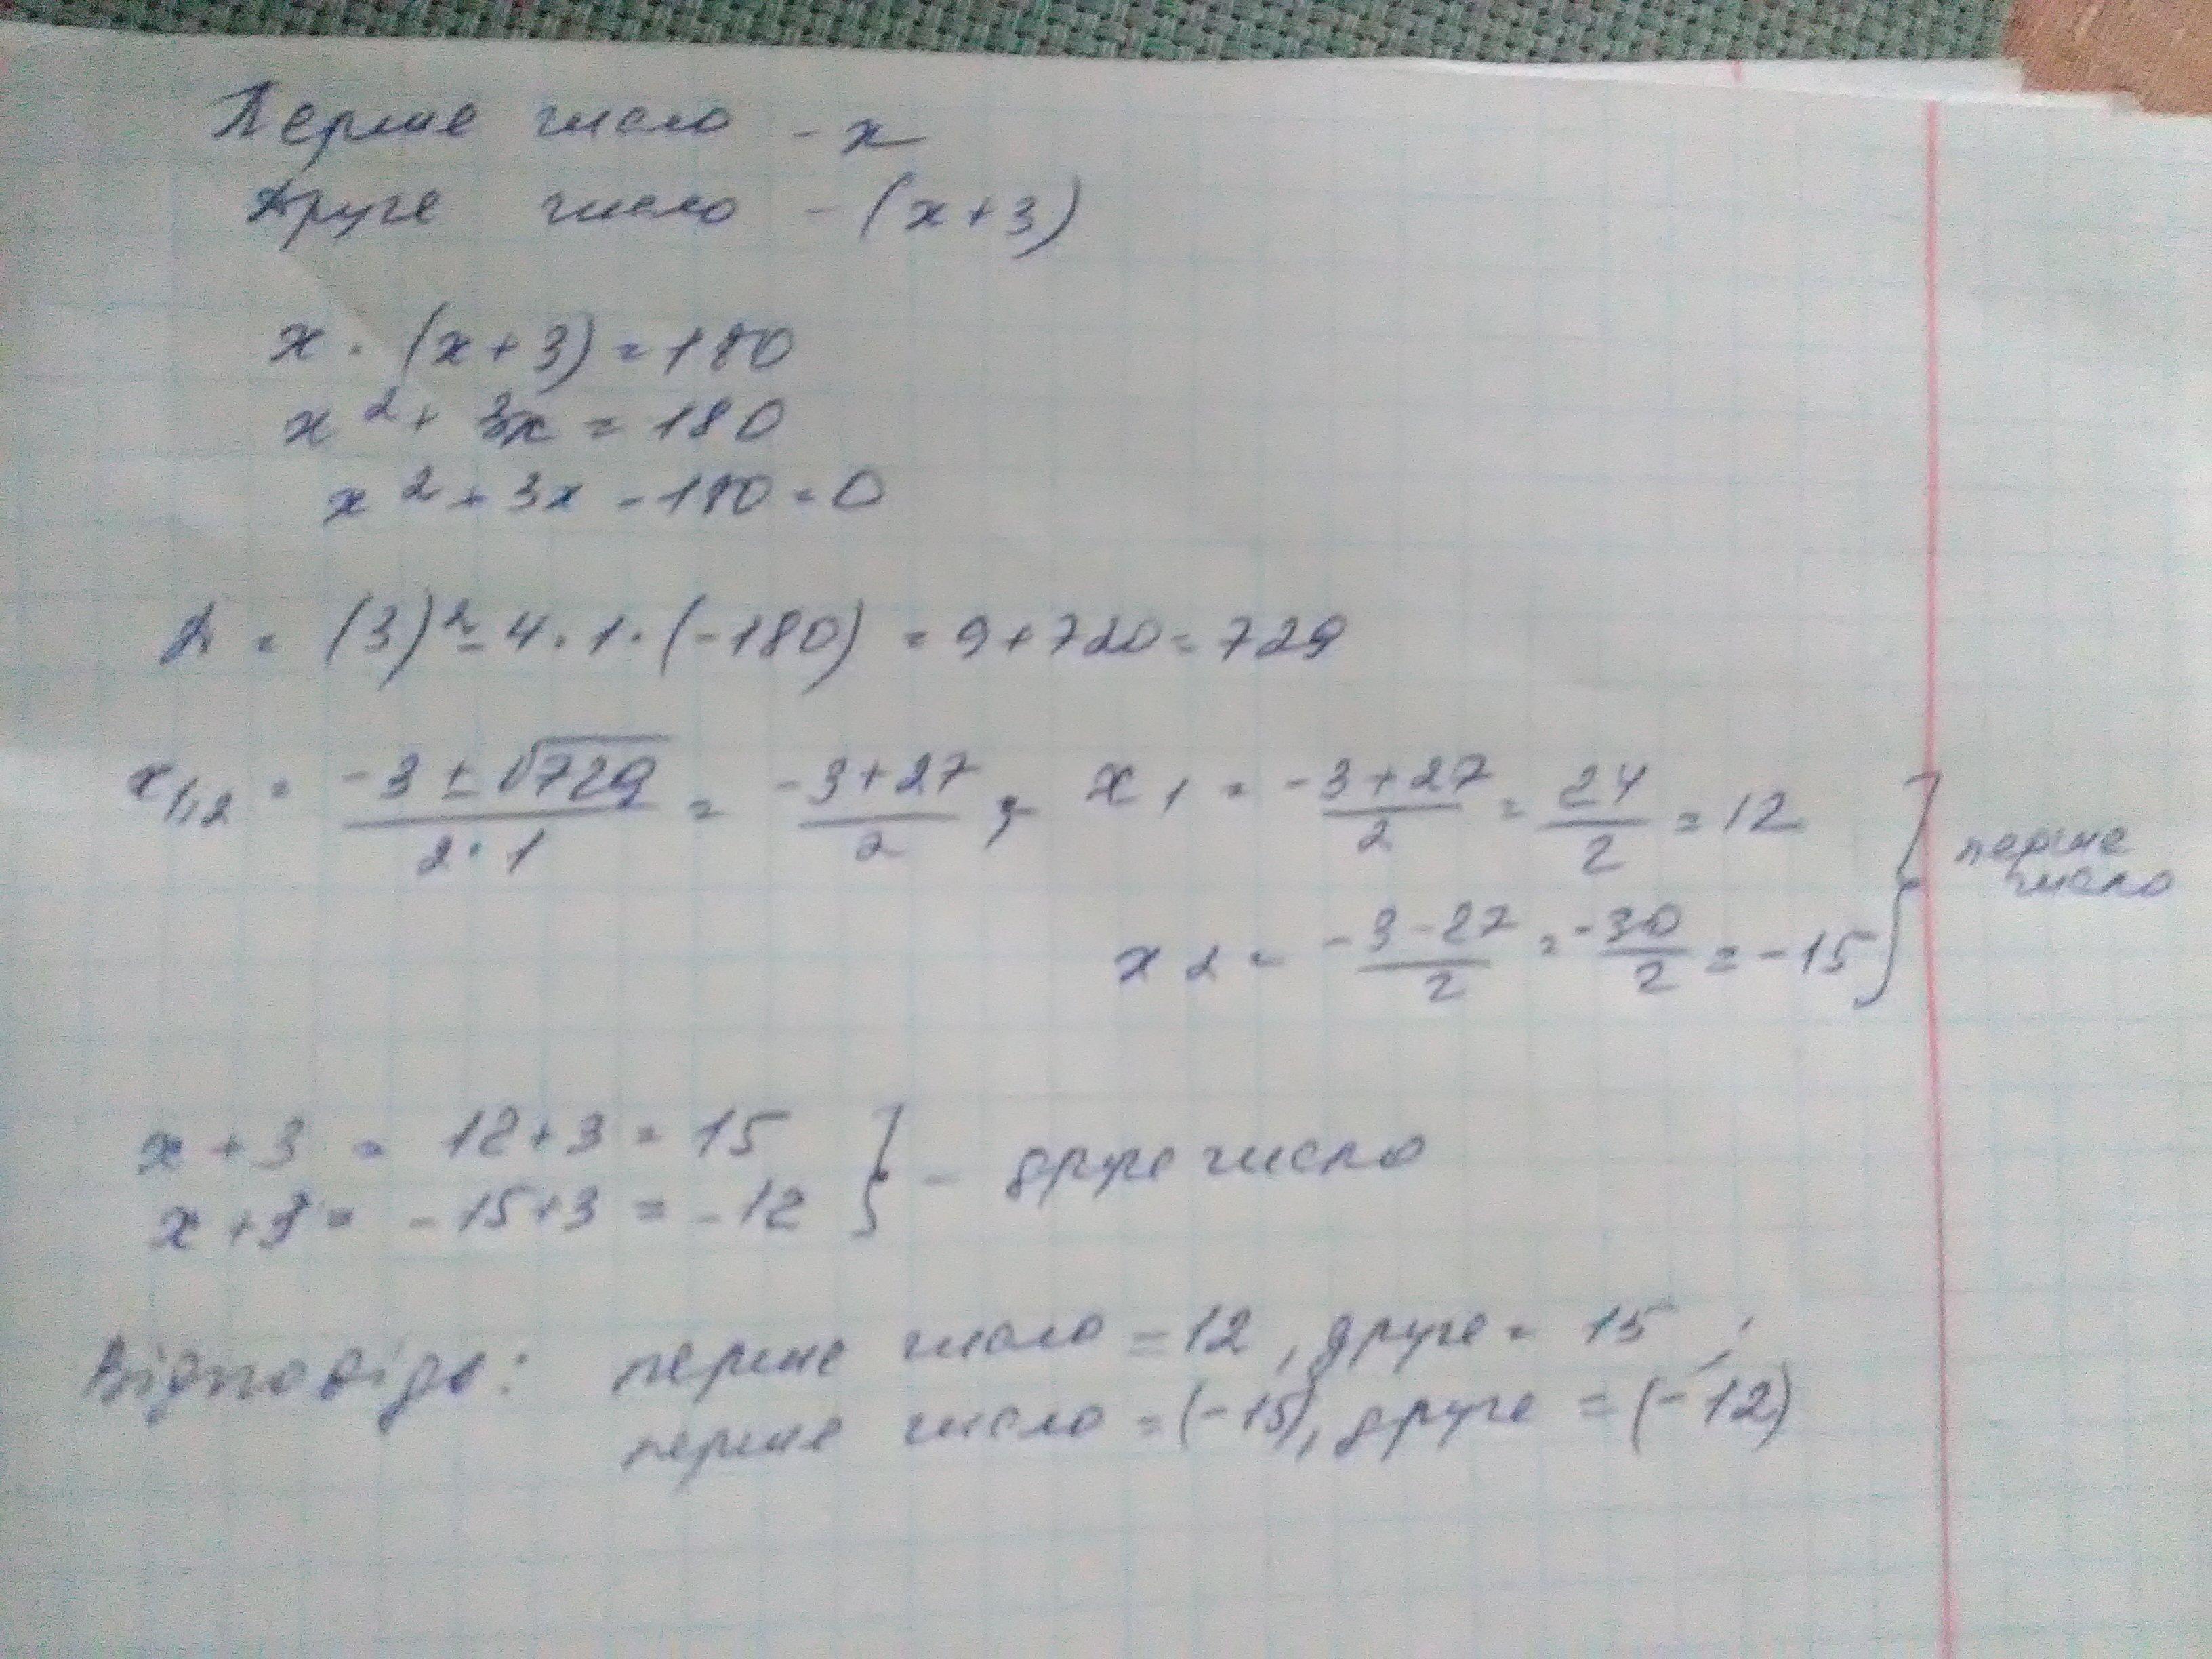 Перше число - x
Друге число - (x+3)
x · (x+3) = 180
x² + 3x = 180
x² + 3x - 180 = 0
D = (3)² - 4·1·(-180) = 9+720 = 729
x1,2 = (-3 ± √729)/(2·1) = (-3+27)/2 ; x1 = (-3+27)/2 = 24/2 = 12
x2 = (-3-27)/2 = -30/2 = -15 } перше число
x + 3 = 12+3 = 15
x + 3 = -15+3 = -12 } - друге число
Відповідь: перше число = 12, друге = 15 ;
перше число = (-15), друге = (-12)